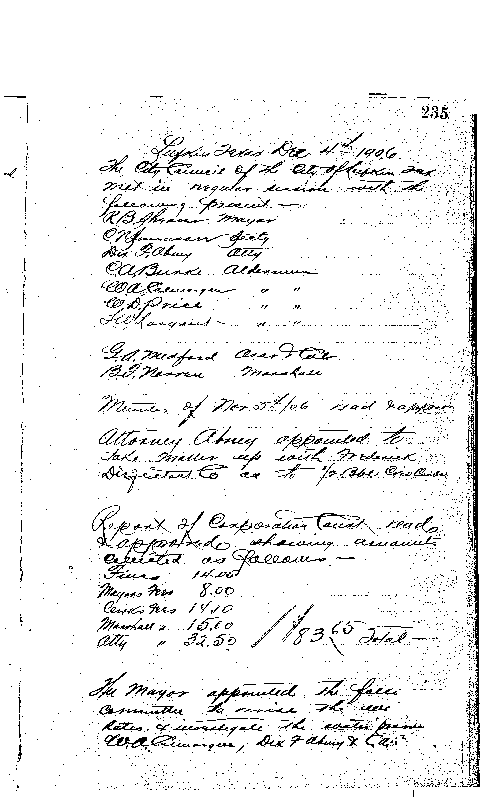 235
Lufkin Texas Dec 4th 1906
The City Council of the City of Lufkin Tex
met in regular session with the
following present —
R B Shearer Mayor
Secty
Dix F. Abney Atty
C A Burke Aldermen
W A " "
C. D. Price " "
" "
G. A. Medford
B. F. Warren Marshall
Minutes of Nov 5th/06 read & approv
Attorney Abney appointed to
take matter up with Frederick
Disinfectant Co as to
Report of Corporation Court read
& approved showing amounts
collected as follows —
Fines 14.00
Mayors Fees 8.00
Clerks Fees 14.10
Marshall " 15.00
Atty " 32.50 83.65 Total —
The Mayor appointed the foll
committee to revise the
Rates & investigate the water
W.A. , Dix F Abney &